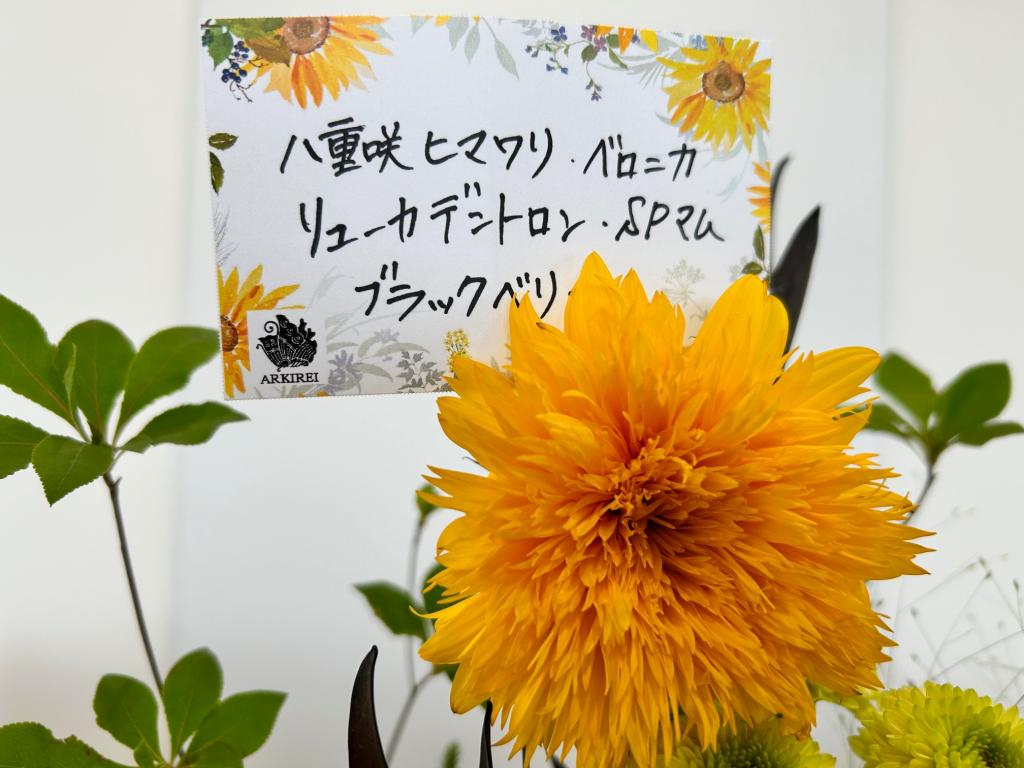 八重咲ヒマワリ・ベロニカ
リューカデントロン・SPマム
ブラックベリー
ARKIREI